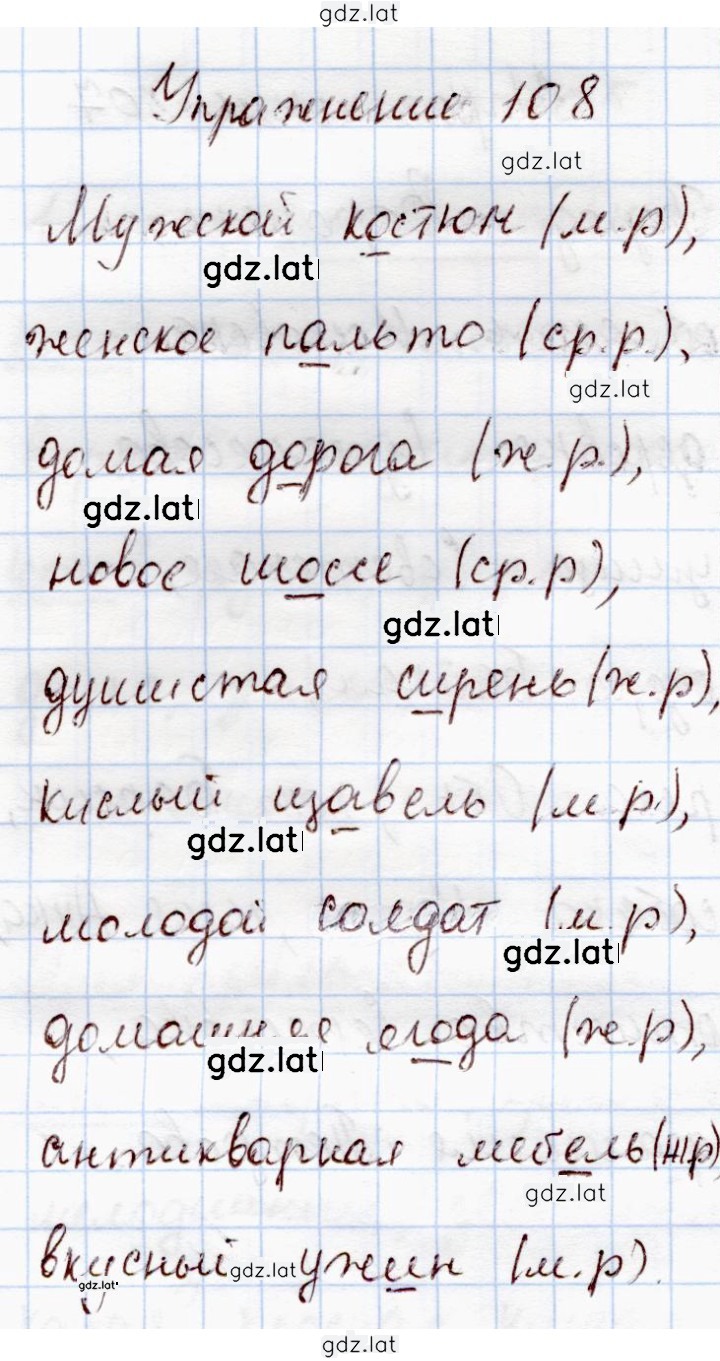 gdz.lat
Упражнение 108
gdz.lat
Мужской костюм (м.р),
gdz.lat
женское пальто (ср.р.),
gdz.lat
домая дорога (ж.р.),
gdz.lat
новое шоссе (ср.р),
gdz.lat
душистая сирень (ж.р),
кислый щавель (м.р.),
gdz.lat
молодой солдат (м.р),
gdz.lat
домашняя ягода (ж.р),
gdz.lat
антикварная мебель (жр),
gdz.lat
вкусный ужин (м.р).
gdz.lat
gdz.lat
gdz.lat